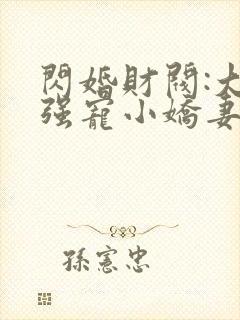 閃婚財閥:大
强寵小嬌妻
孫憲忠